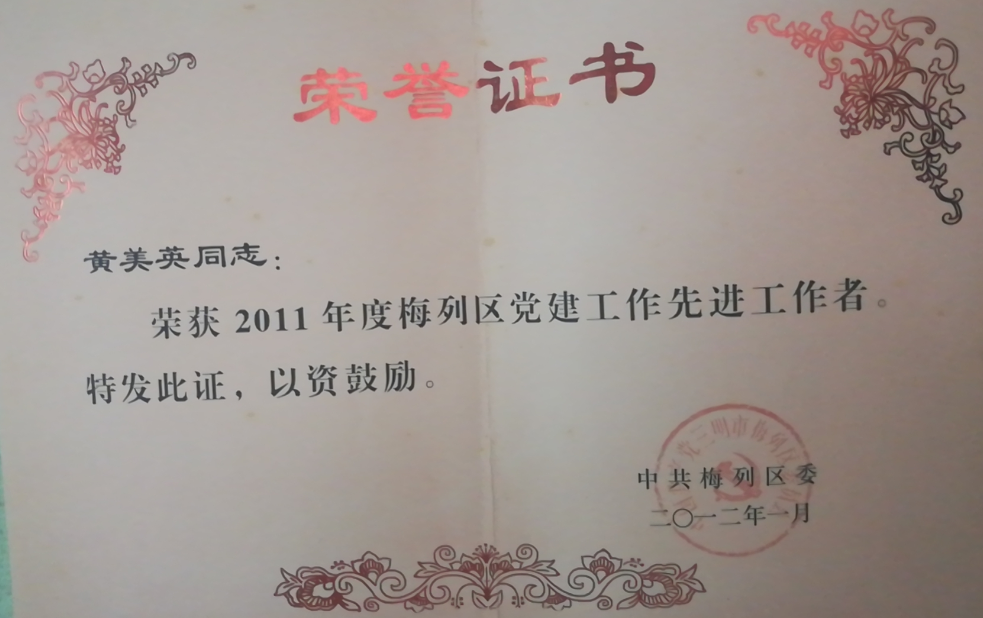 荣誉证书
黄美英同志：
荣获2011年度梅列区党建工作先进工作者。
特发此证，以资鼓励。
三明市梅列区
中共梅列区委
二〇一二年一月